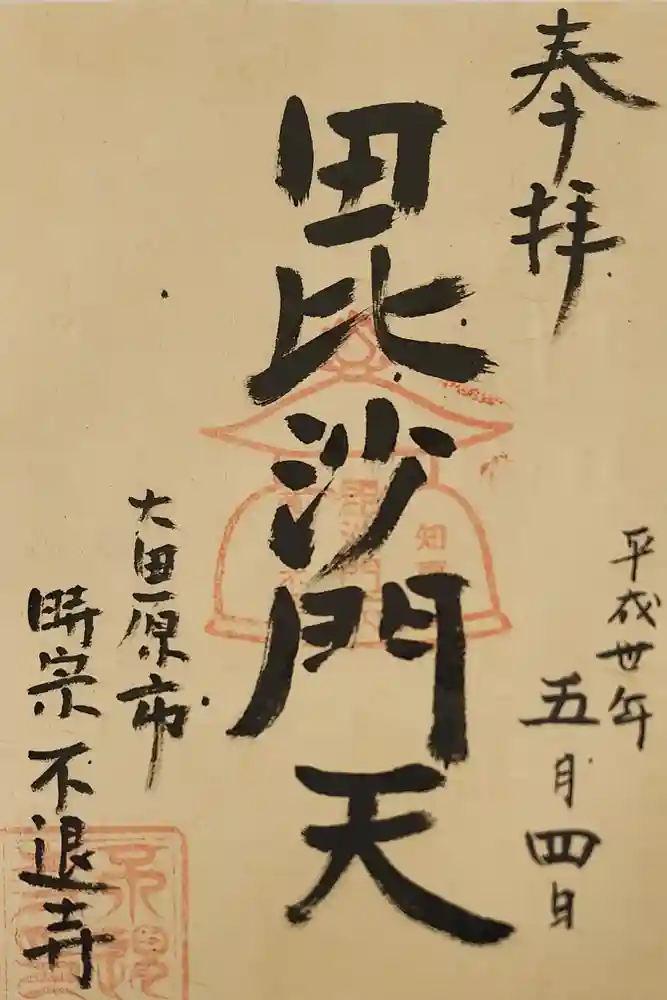 奉拝
平成丗年
五月四日
毘沙門天
大田原市
時宗 不退寺